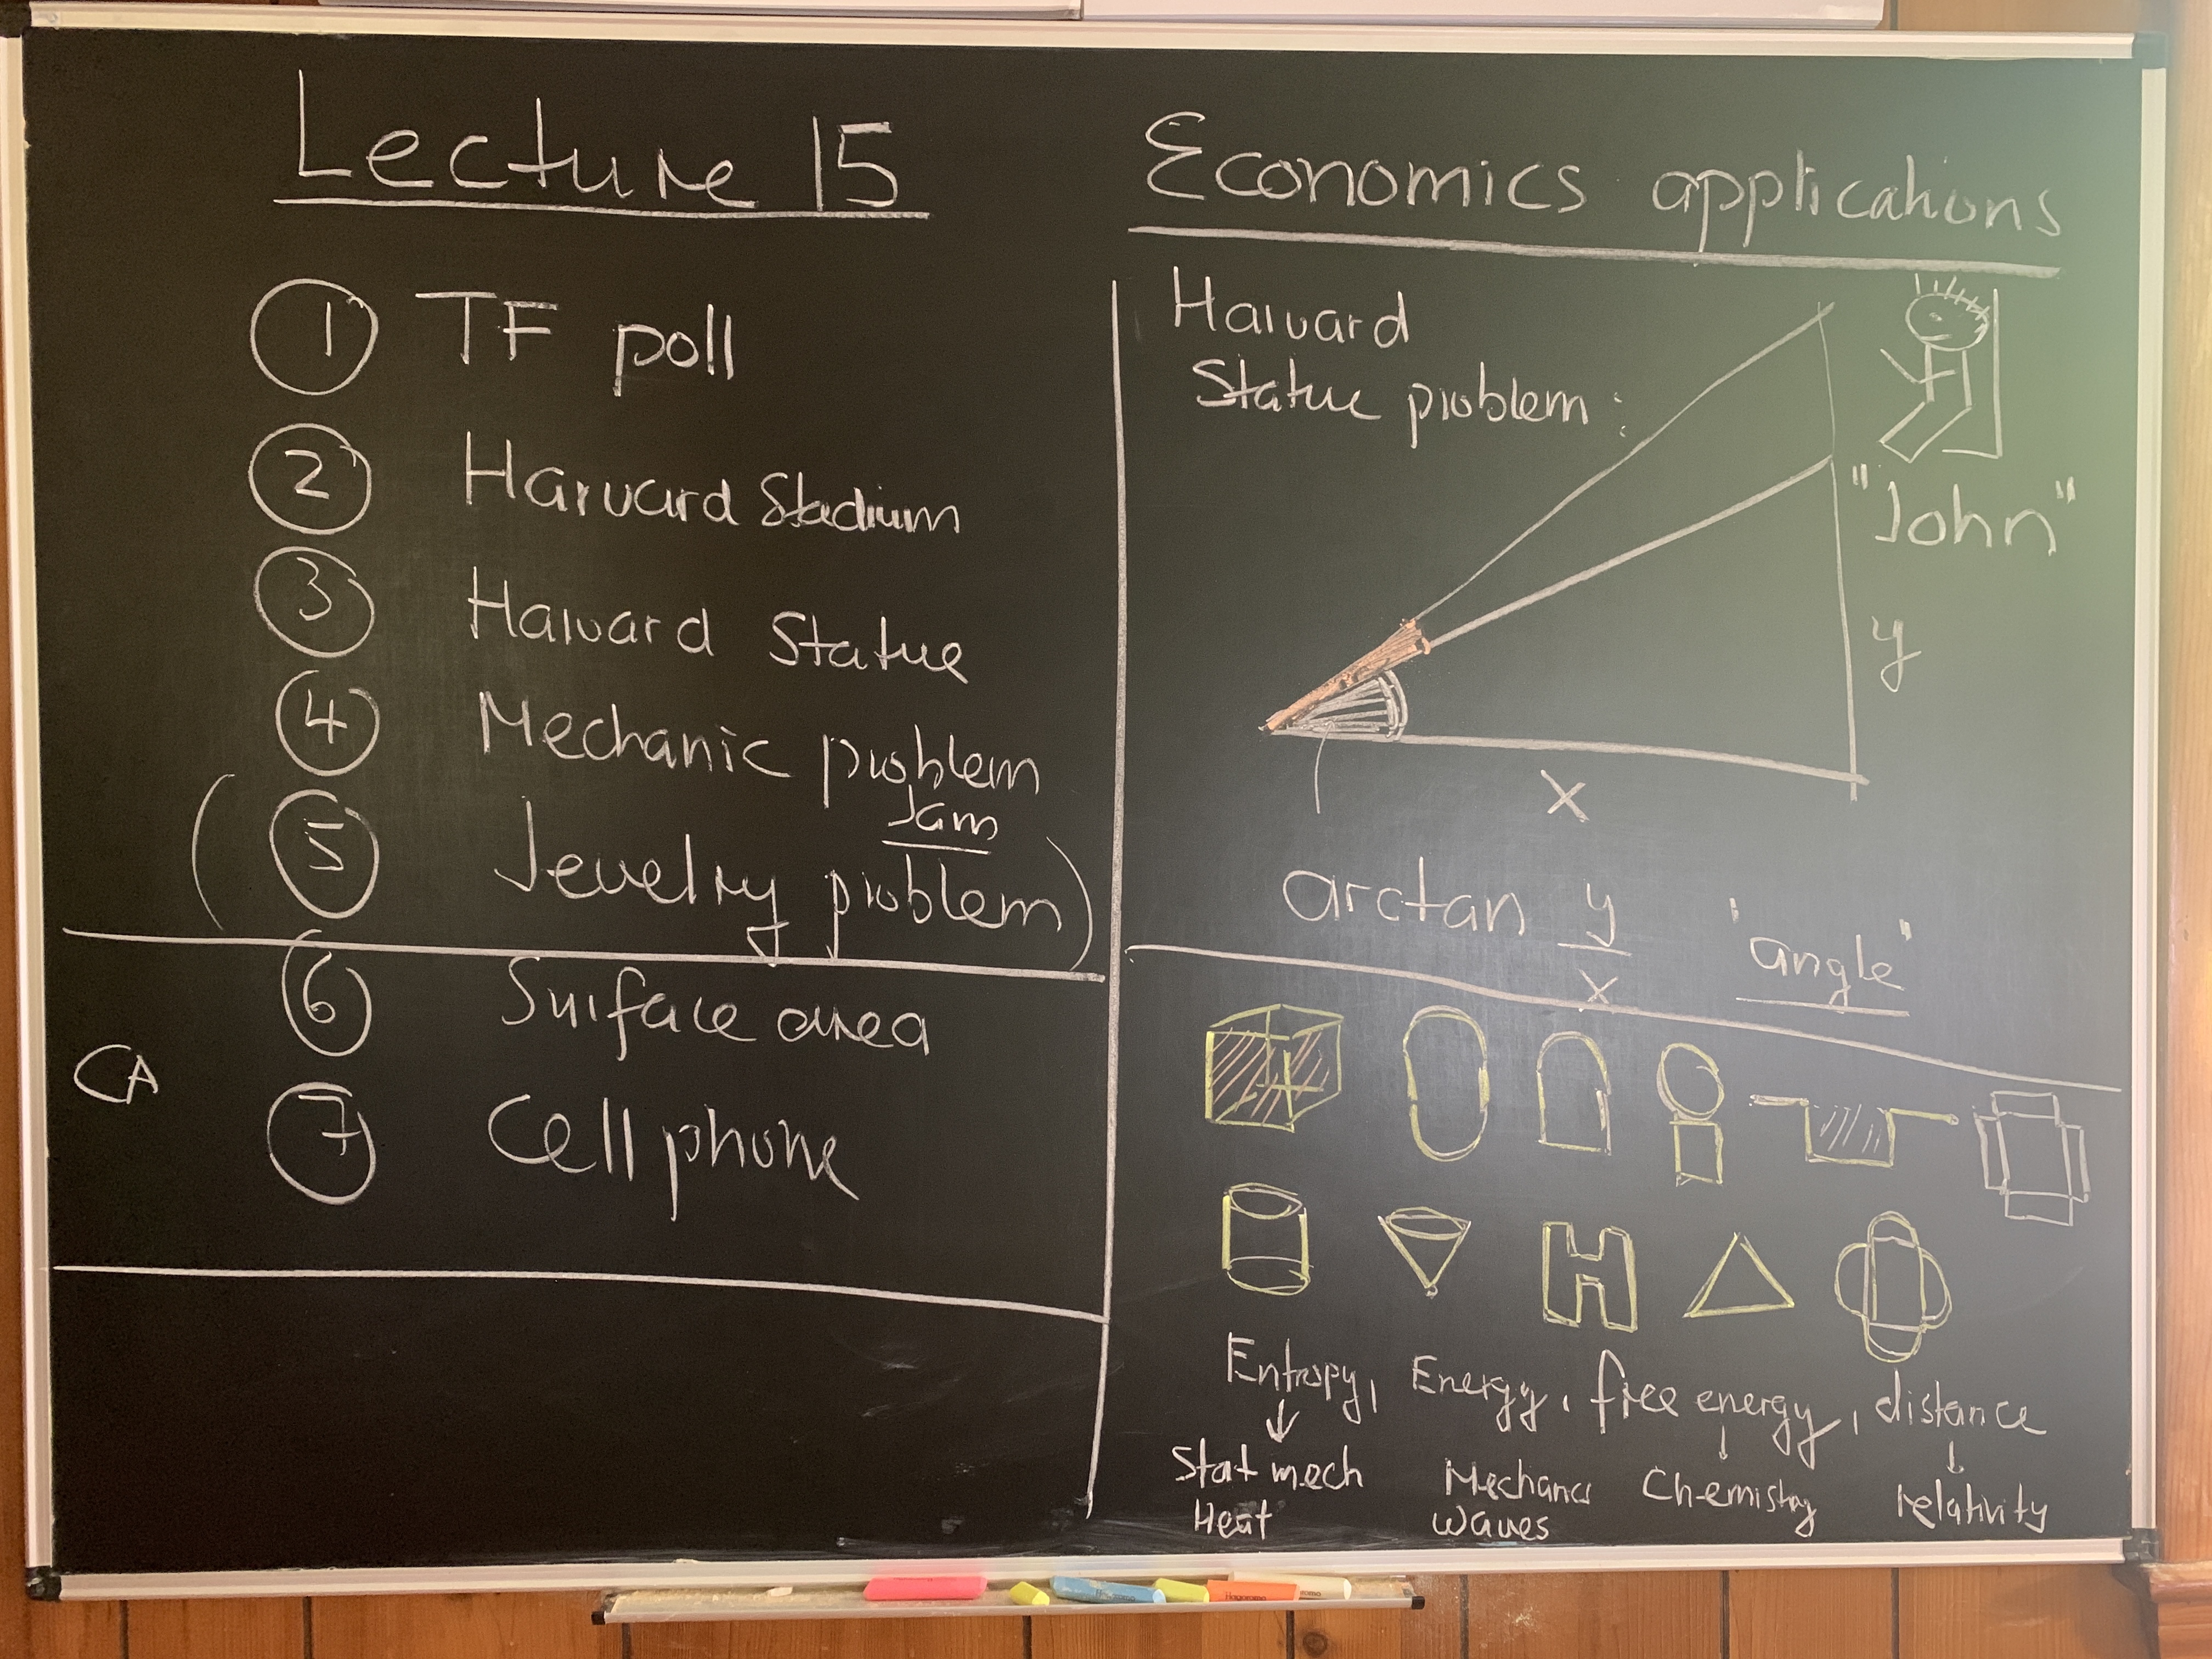 Lecture 15
1 TF poll
2 Harvard Stadium
3 Harvard Statue
4 Mechanic problem
Jam
( 5 Jewelry problem )
6 Surface area
CA
7 Cell phone
Economics applications
Harvard
Statue problem :
"John"
y
x
arctan y/x 'angle"
H
Entropy, Energy, free energy, distance
↓ ↓ ↓
Stat mech Mechanics Chemistry relativity
Heat Waves
Hagoromo